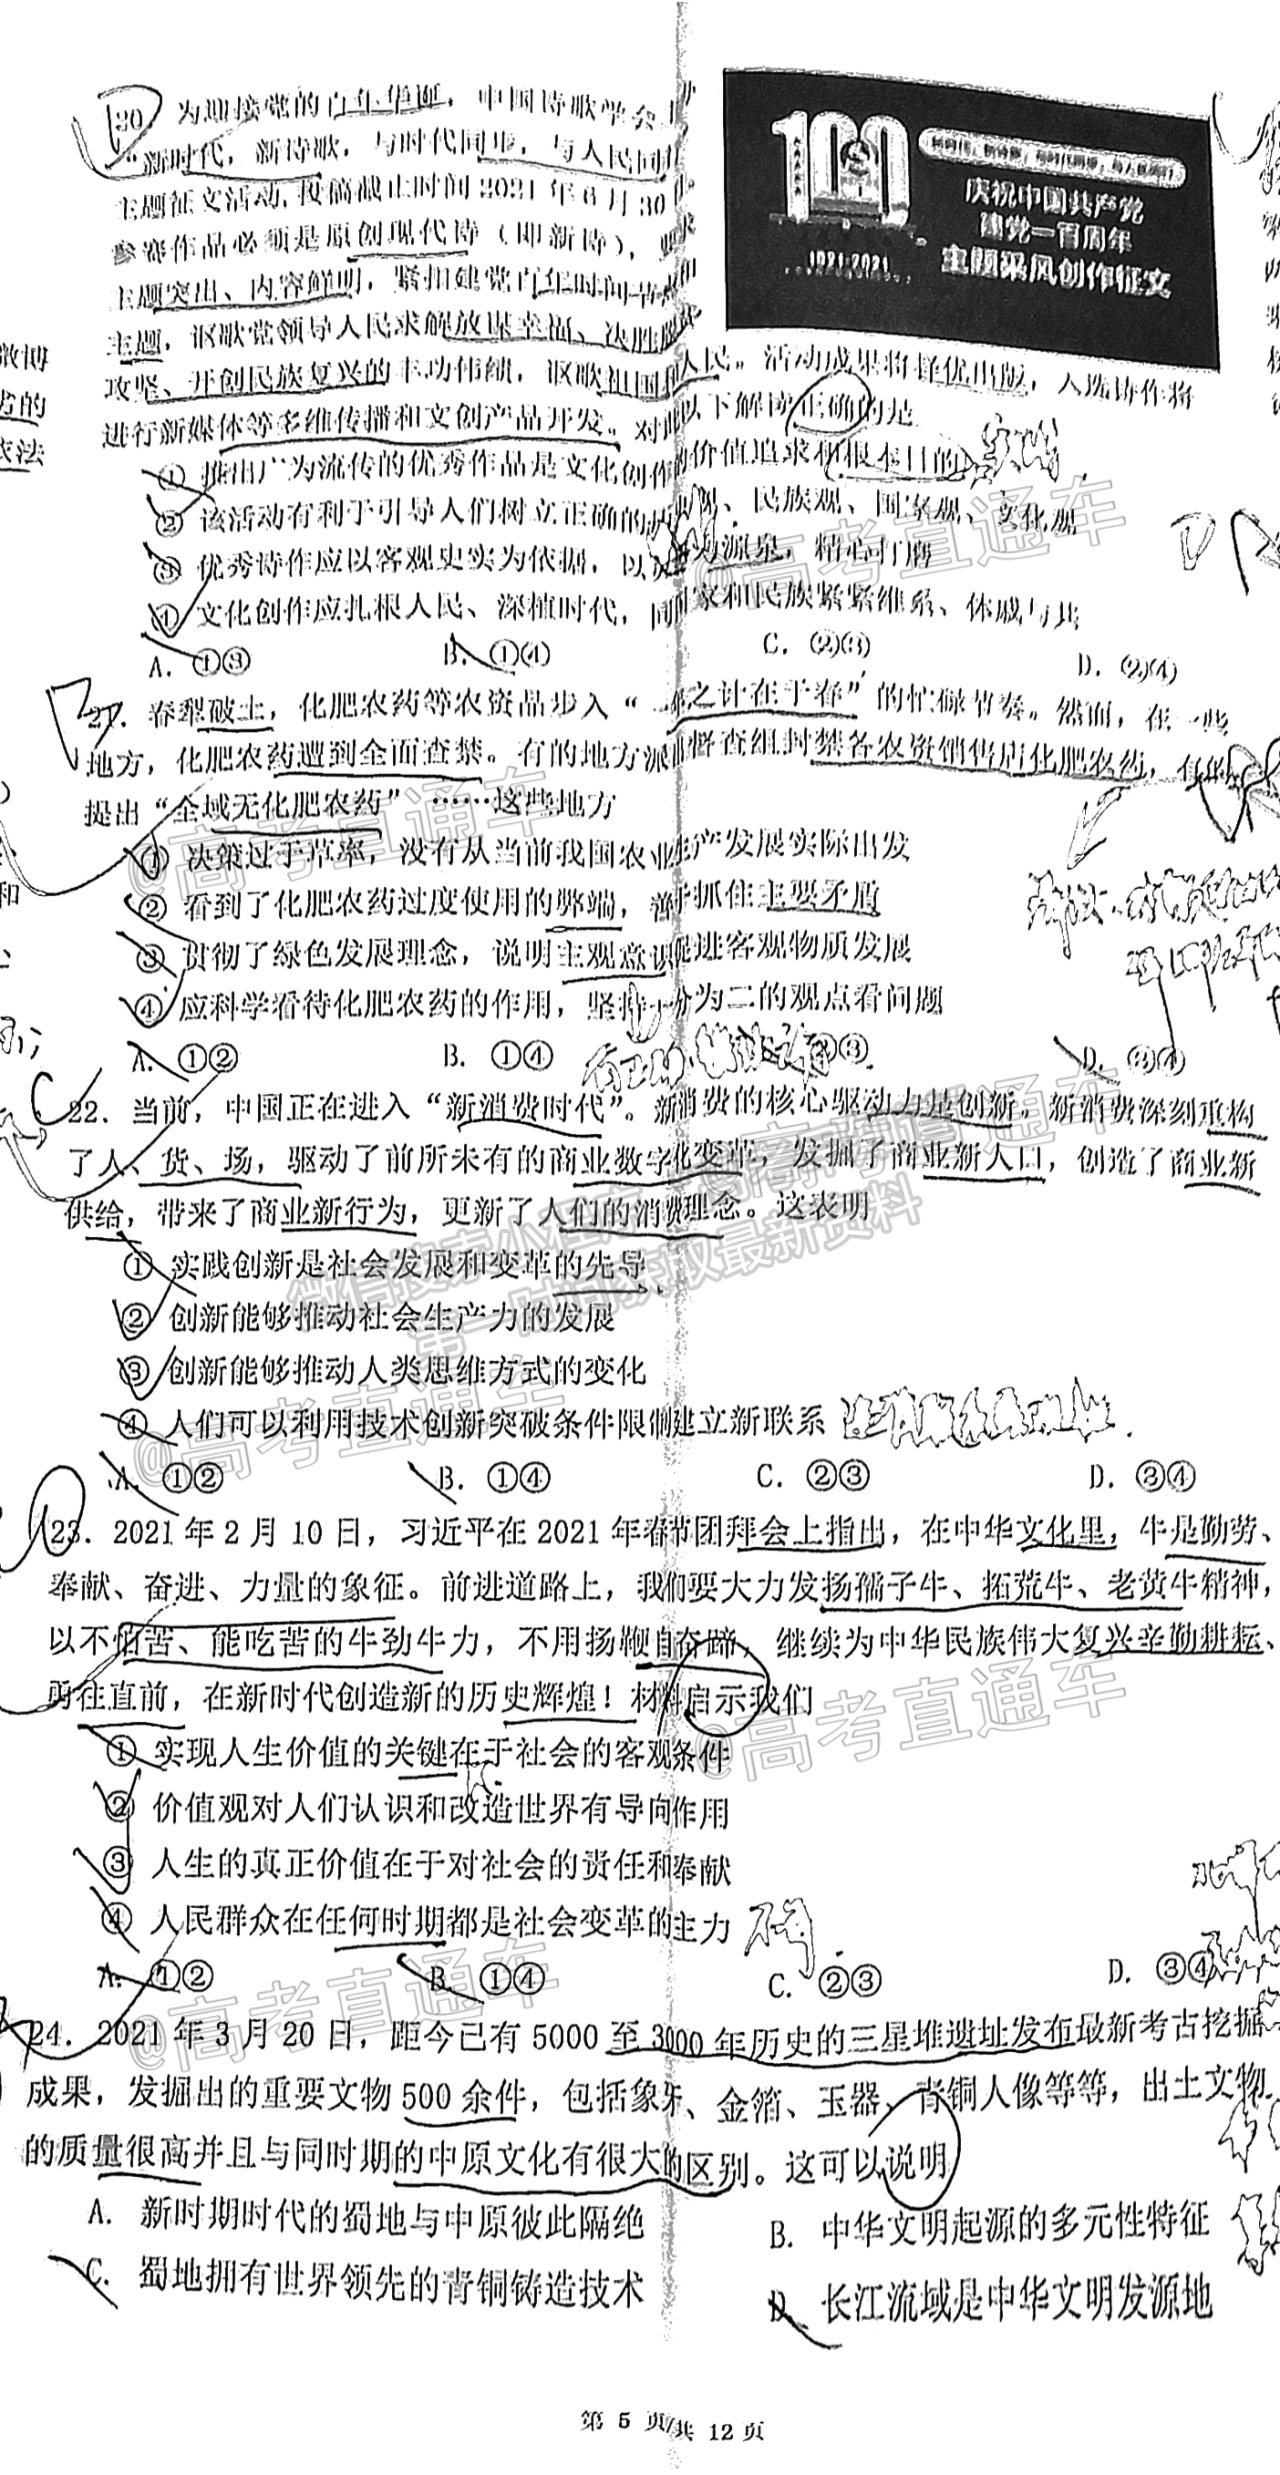 20. 为迎接党的百年华诞，中国诗歌学会
“新时代，新诗歌，与时代同步，与人民同
主题征文活动，投稿截止时间2021年6月30
参赛作品必须是原创现代诗（即新诗），
主题突出、内容鲜明，紧扣建党百年时间节
主题，讴歌党领导人民求解放谋幸福、决胜脱
攻坚、开创民族复兴的丰功伟绩，讴歌祖国和人民。活动成果将择优出版，入选诗作将
进行新媒体等多维传播和文创产品开发。对此以下解读正确的是
100
1921-2021
庆祝中国共产党
建党一百周年
主题采风创作征文
①推出广为流传的优秀作品是文化创作的价值追求和根本目的
②该活动有利于引导人们树立正确的历史观、民族观、国家观、文化观
③优秀诗作应以客观史实为依据，以 为源泉，精心打磨
④文化创作应扎根人民、深植时代，同国家和民族紧紧维系、休戚与共
A. ①③ B. ①④ C. ②③ D. ②④
21. 春犁破土，化肥农药等农资品步入“一年之计在于春”的忙碌节奏。然而，在一些
地方，化肥农药遭到全面查禁。有的地方派出督查组封禁各农资销售店化肥农药，有的
提出“全域无化肥农药”……这些地方
①决策过于草率，没有从当前我国农业生产发展实际出发
②看到了化肥农药过度使用的弊端，善于抓住主要矛盾
③贯彻了绿色发展理念，说明主观意识促进客观物质发展
④应科学看待化肥农药的作用，坚持一分为二的观点看问题
A. ①② B. ①④ ②③ D. ③④
22. 当前，中国正在进入“新消费时代”。新消费的核心驱动力是创新。新消费深刻重构
了人、货、场，驱动了前所未有的商业数字化变革，发掘了商业新人口，创造了商业新
供给，带来了商业新行为，更新了人们的消费理念。这表明
①实践创新是社会发展和变革的先导
②创新能够推动社会生产力的发展
③创新能够推动人类思维方式的变化
④人们可以利用技术创新突破条件限制建立新联系
A. ①② B. ①④ C. ②③ D. ③④
23. 2021年2月10日，习近平在2021年春节团拜会上指出，在中华文化里，牛是勤劳、
奉献、奋进、力量的象征。前进道路上，我们要大力发扬孺子牛、拓荒牛、老黄牛精神，
以不怕苦、能吃苦的牛劲牛力，不用扬鞭自奋蹄，继续为中华民族伟大复兴辛勤耕耘、
勇往直前，在新时代创造新的历史辉煌！材料启示我们
①实现人生价值的关键在于社会的客观条件
②价值观对人们认识和改造世界有导向作用
③人生的真正价值在于对社会的责任和奉献
④人民群众在任何时期都是社会变革的主力
A. ①② B. ①④ C. ②③ D. ③④
24. 2021年3月20日，距今已有5000至3000年历史的三星堆遗址发布最新考古挖掘
成果，发掘出的重要文物500余件，包括象牙、金箔、玉器、青铜人像等等，出土文物
的质量很高并且与同时期的中原文化有很大的区别。这可以说明
A. 新时期时代的蜀地与中原彼此隔绝 B. 中华文明起源的多元性特征
C. 蜀地拥有世界领先的青铜铸造技术 D. 长江流域是中华文明发源地
第 5 页 共 12 页
@高考直通车
微信搜索小程序
第一时间获取最新资料